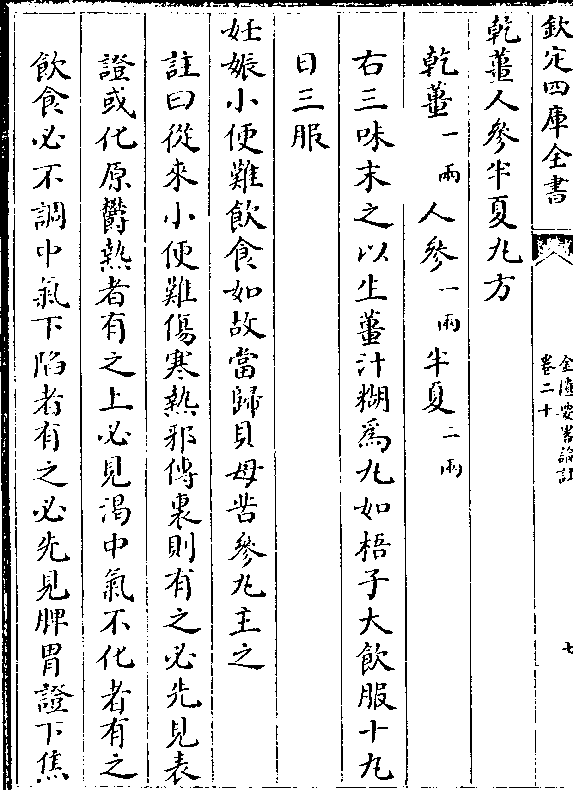 欽定四庫全書
金匱要畧論註
卷二十
七
乾薑人參半夏丸方
乾薑一兩人參一兩半夏二兩
右三味末之以生薑汁糊爲丸如梧子大飲服十丸
日三服
妊娠小便難飲食如故當歸貝母苦參丸主之
註曰從來小便難傷寒熱邪傳裏則有之必先見表
證或化原欝熱者有之上必見渴中氣不化者有之
飲食必不調中氣下陷者有之必先見脾胃證下焦